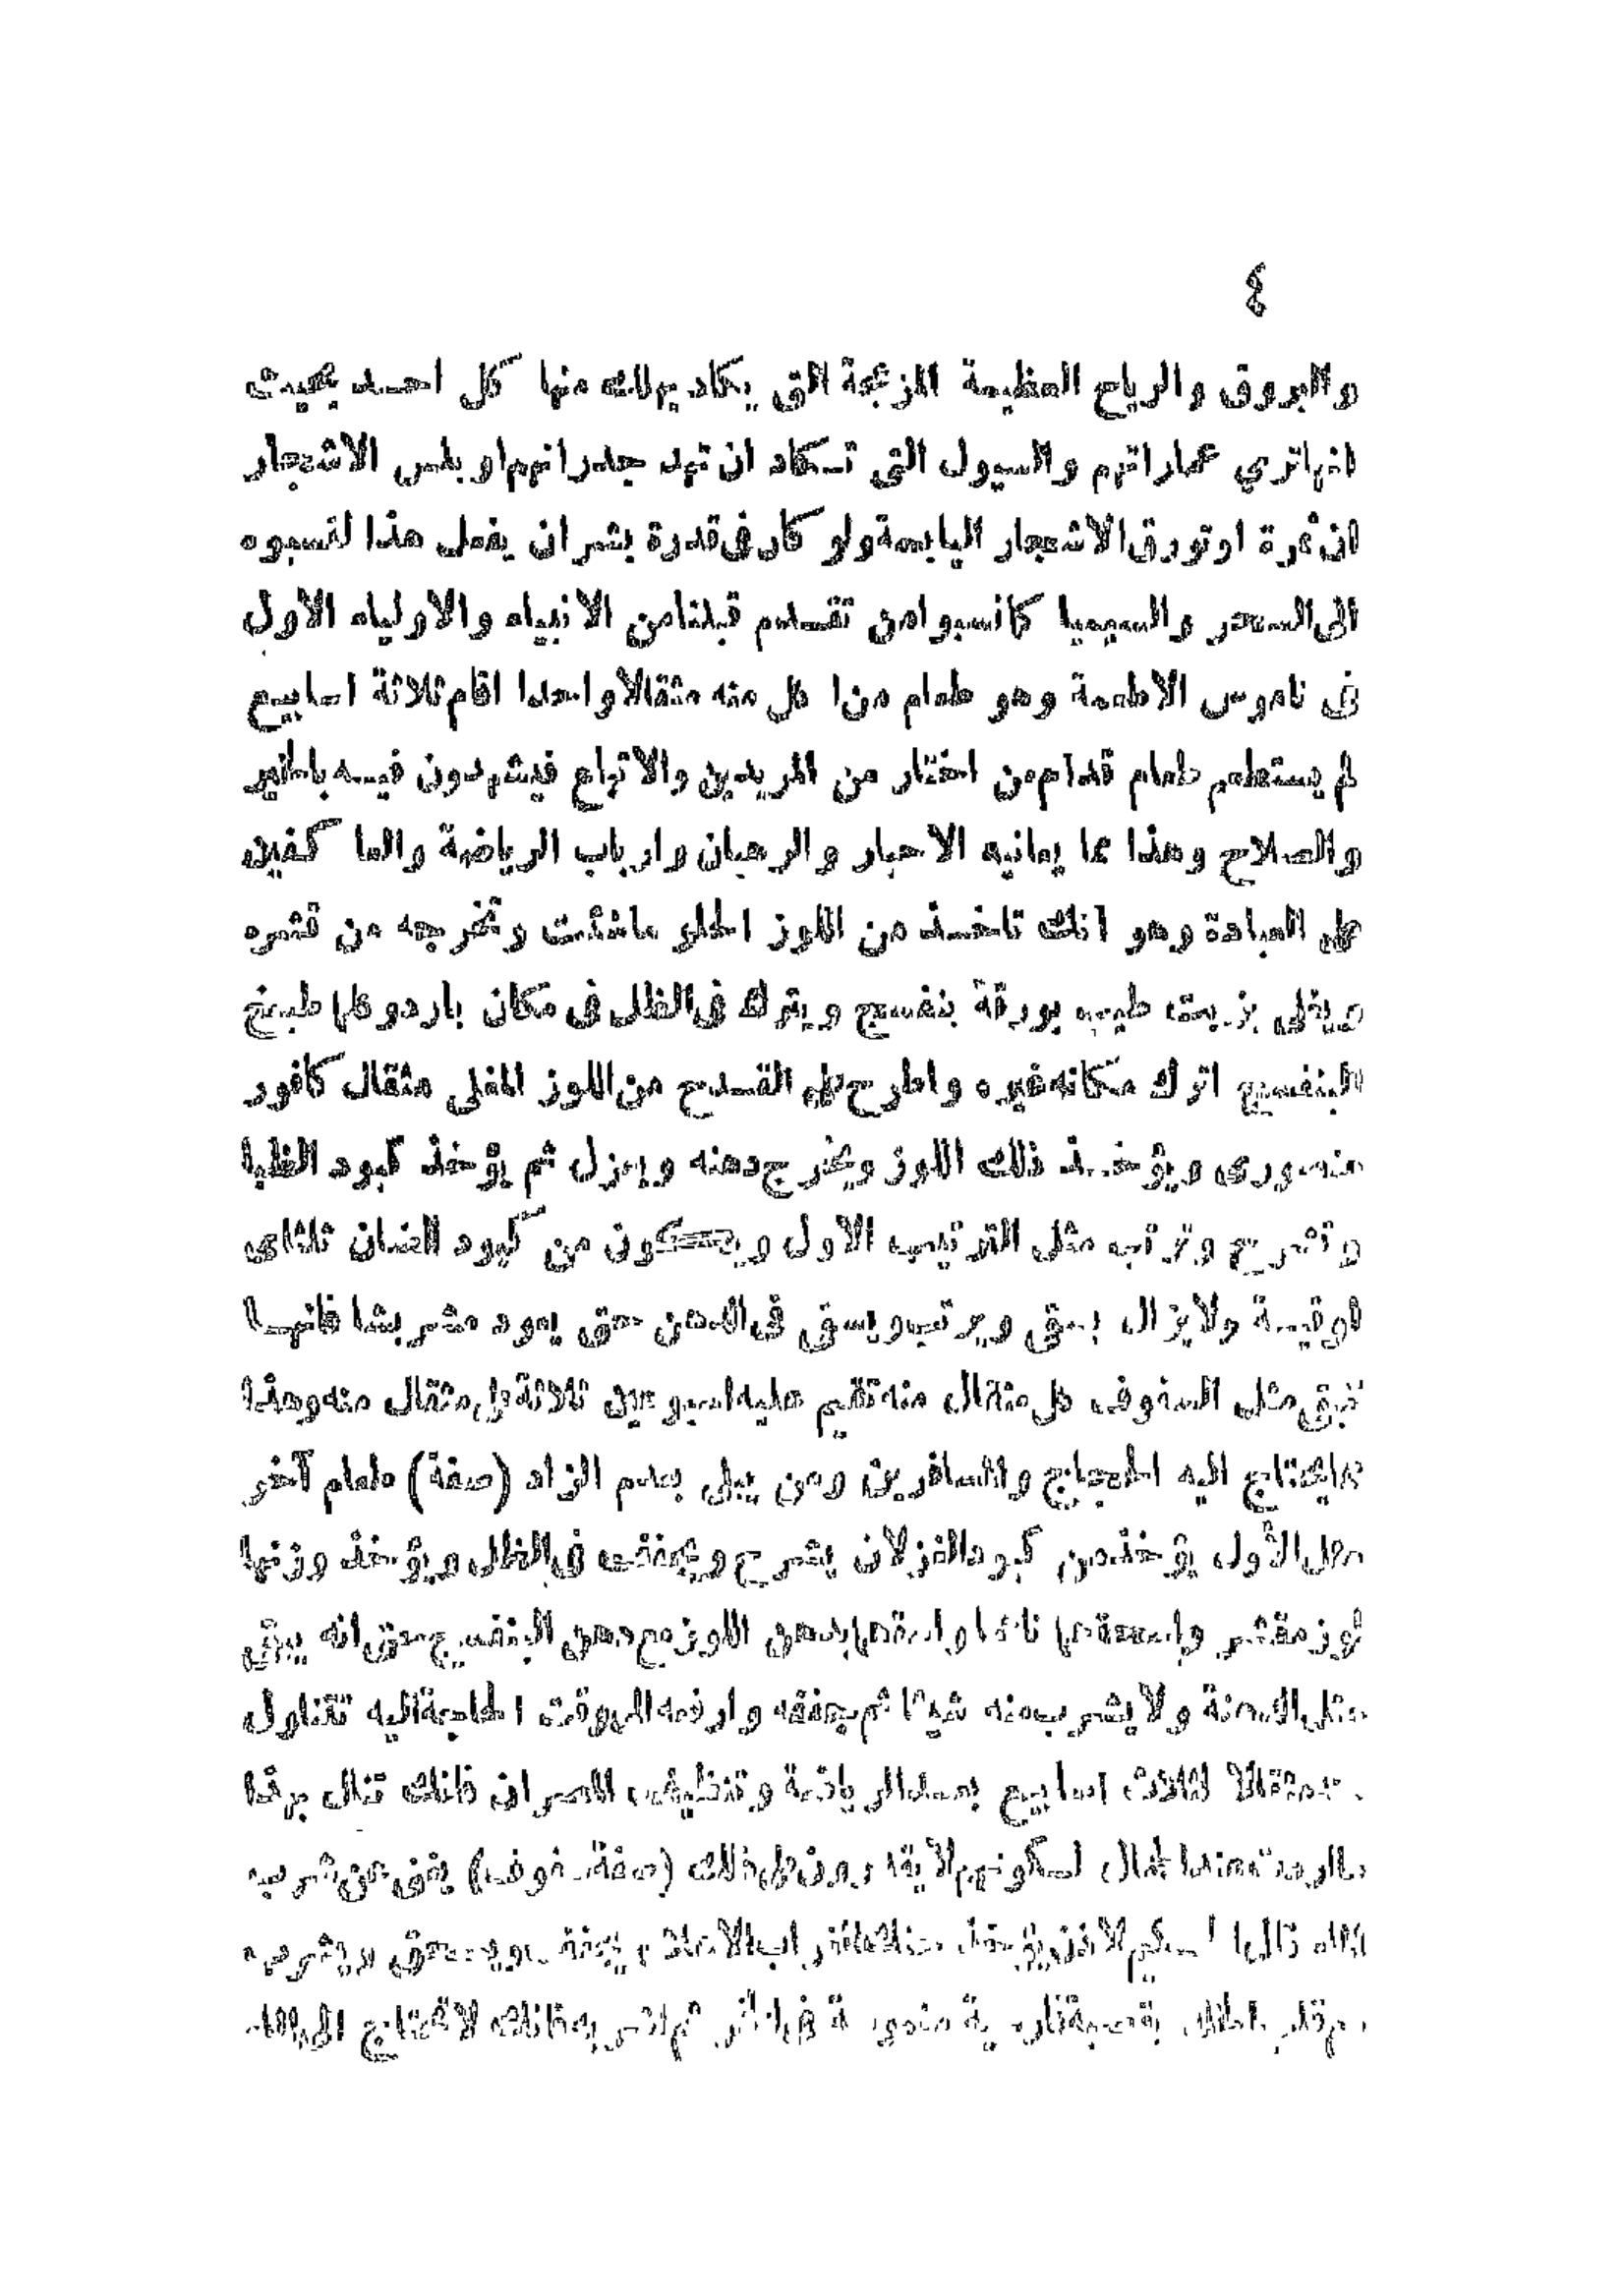 ٤
والبروق والرياح العظيمة المزعجة التى يكاد يهلك منها كل احد بحيث
انها ترى عماراتهم والسيول التى تكاد ان تهد جدرانهم او يلمس الاشجار
ان ثمرة او تورق الاشجار اليابسة ولو كان فى قدرة بشر ان يفعل هذا لنسبوه
الى السحر والسيميا كما نسبوا من تقدم قبلنا من الانبياء والاولياء الاول
فى ناموس الاطعمة وهو طعام من اكل منه مثقالا واحدا اقام ثلاثة اسابيع
لم يستطعم طعام قدام من اختار من المريدين والاتباع فيشهدون فيه بالخير
والصلاح وهذا مما يعانيه الاحبار والرهبان وارباب الرياضة والعاكفين
على العبادة وهو انك تاخذ من اللوز الحلو ما شئت وتخرجه من قشره
ويقلى بزيت طيب بورقة بنفسج ويترك فى الظل فى مكان بارد وكلما طبخ
البنفسج اترك مكانه غيره واطرح على القدح من اللوز المغلى مثقال كافور
منصورى ويؤخذ ذلك اللوز ويخرج دهنه ويعزل ثم يؤخذ كبود الظبا
وتشرح وترتب مثل الترتيب الاول ويكون من كبود الضان ثلثاى
اوقية ولا يزال يسقى ويرتب ويسقى فى الدهن حتى يعود مشربشا فانها
تبقى مثل السفوف كل مثقال منه تقيم عليه اسبوعين ثلاثة كل مثقال منه وهذا
مما يحتاج اليه الحجاج والمسافرين ومن يبلى بعدم الزاد (صفة) طعام آخر
مثل الأول يؤخذ من كبود الغزلان يشرح ويجفف فى الظل ويؤخذ وزنها
لوز مقشر واسحقهما ناعما واسقهما بدهن اللوز مع دهن البنفسج حتى انه يبقى
مثل الدهنة ولا يشرب منه شيئا ثم جففه وارفعه الى وقت الحاجة اليه تتناول
منه مثقالا لثلاث اسابيع بعد الرياضة وتنظيف المصران فانك تنال بهذا
عند الجهال لكونهم لا يقدرون على ذلك (صفة سفوف) يغنى عن شرب
الماء يؤخذ ويسحق ويشرب
ثم اشربه فانك لا تحتاج الى الماء